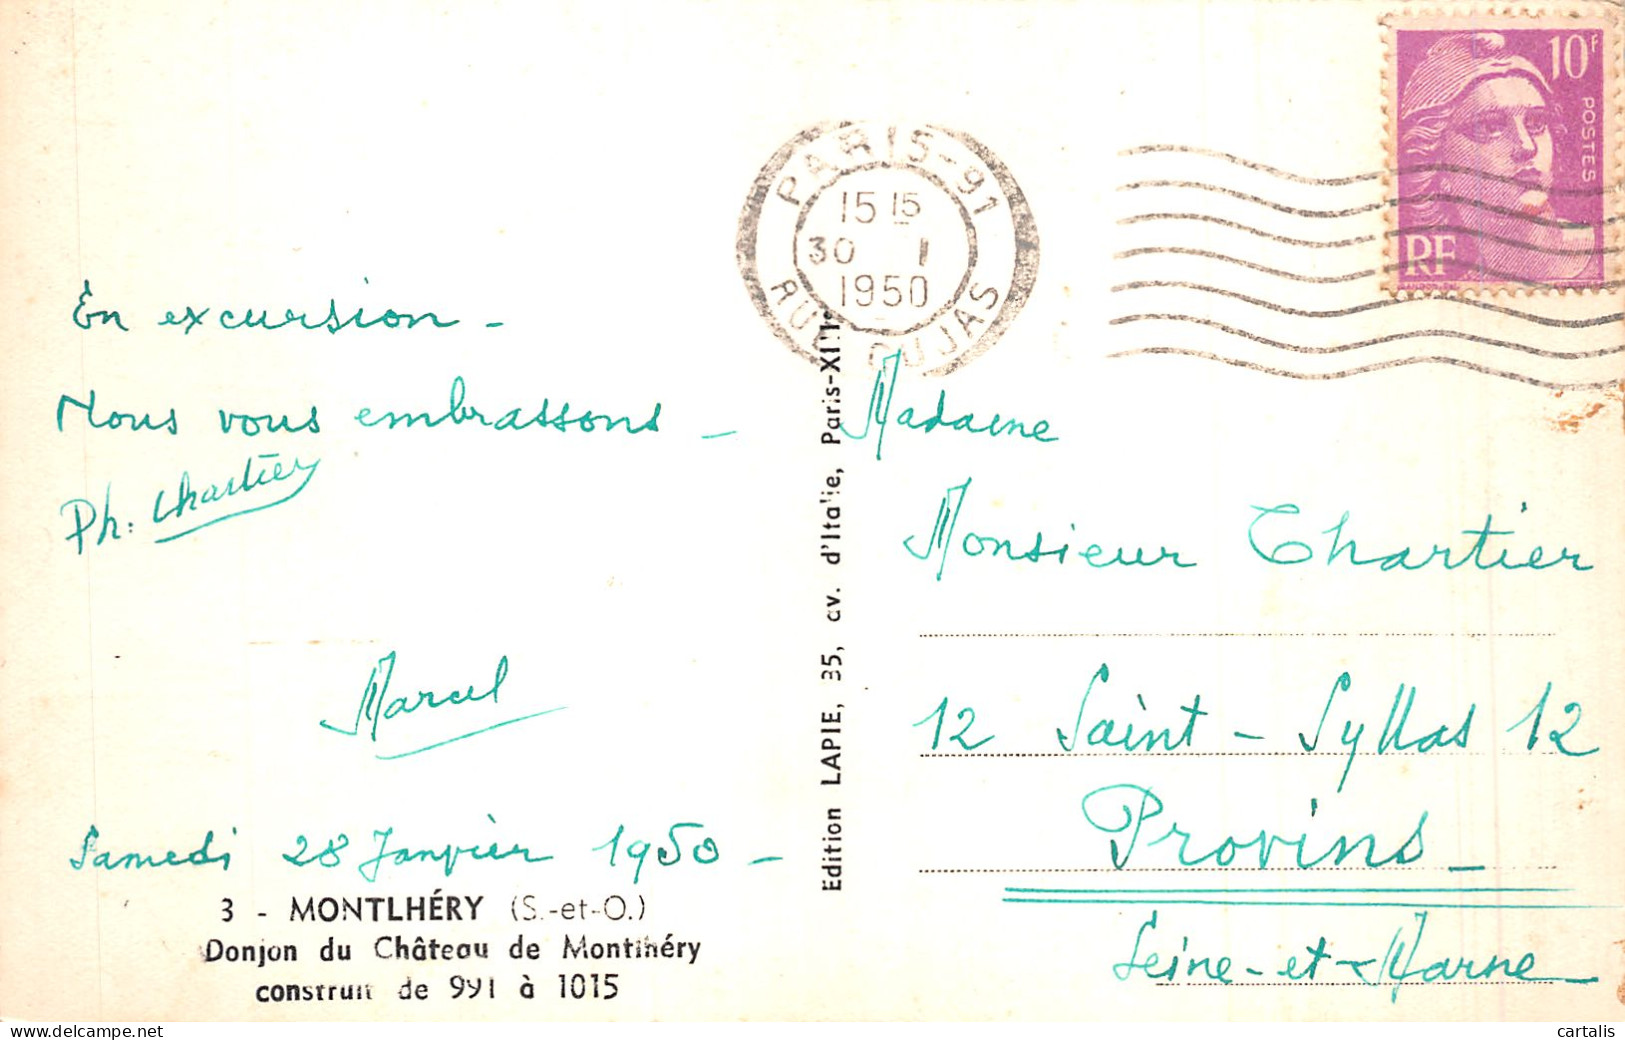 10F
POSTES
RF
PARIS-91
15 15
30 1
1950
RUE CUJAS
En excursion -
Nous vous embrassons -
Ph: Chartier
Marcel
Samedi 28 Janvier 1950 -
3 - MONTLHÉRY (S.-et-O.)
Donjon du Château de Montlhéry
construit de 991 à 1015
Edition LAPIE, 35, av. d'Italie, Paris-XIIIe
Madame
Monsieur Chartier
12 Saint - Syllas 12
Provins -
Seine-et-Marne
cartalis